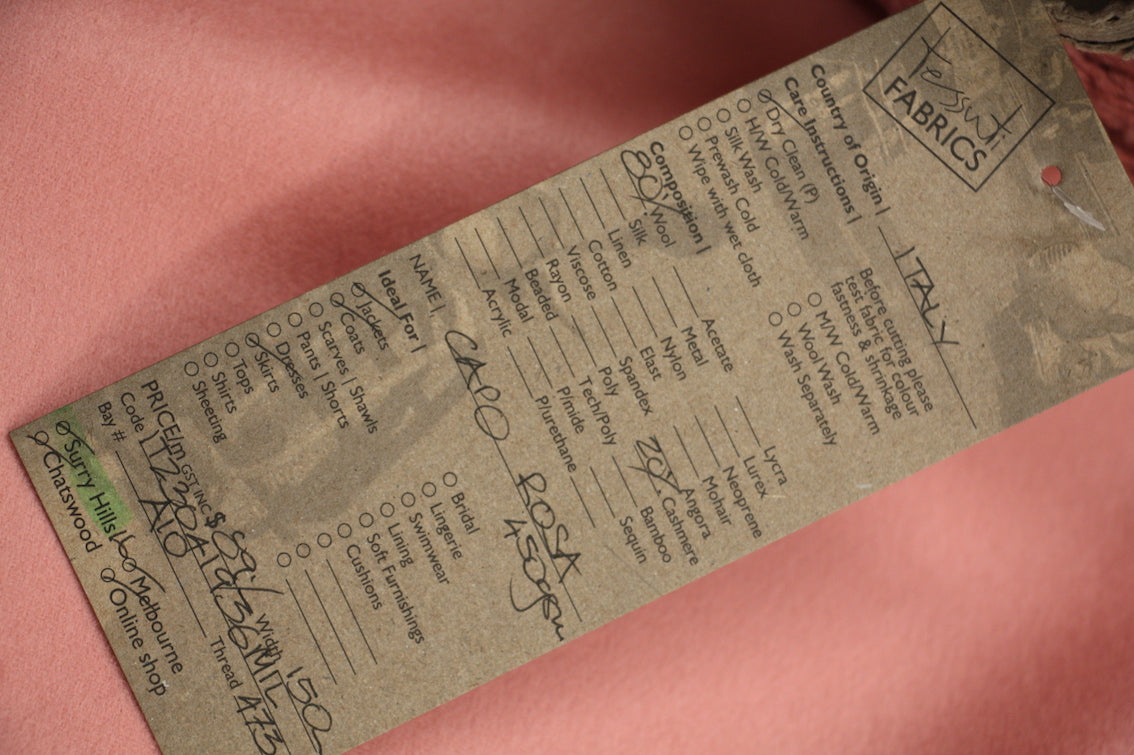 Tessuti
FABRICS
Country of Origin | ITALY
Care Instructions |
Dry Clean (P)
H/W Cold/Warm
Silk Wash
Prewash Cold
Wipe with wet cloth
Before cutting please
test fabric for colour
fastness & shrinkage
M/W Cold/Warm
Wool Wash
Wash Separately
Composition |
80% Wool
Silk
Linen
Cotton
Viscose
Rayon
Beaded
Modal
Acrylic
Acetate
Metal
Nylon
Elast
Spandex
Poly
Tech/Poly
P/mide
P/urethane
Lycra
Lurex
Neoprene
Mohair
Angora
20% Cashmere
Bamboo
Sequin
NAME | CAPO ROSA
450gsm
Ideal For |
Jackets
Coats
Scarves | Shawls
Pants | Shorts
Dresses
Skirts
Tops
Shirts
Sheeting
Bridal
Lingerie
Swimwear
Lining
Soft Furnishings
Cushions
PRICE/m GST INC $89/ Width 150
Code
Bay # A10 Thread 473
Surry Hills Melbourne
Chatswood Online shop